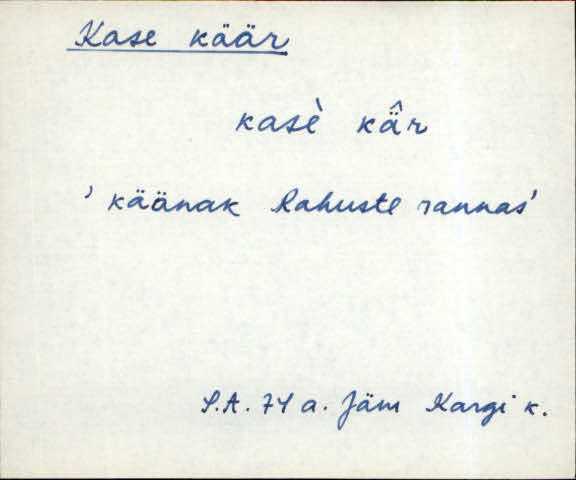 Kase käär
kasè kä̂r
’käänak Rahuste rannas’
S.A. 74 a. Jäm Kargi k.